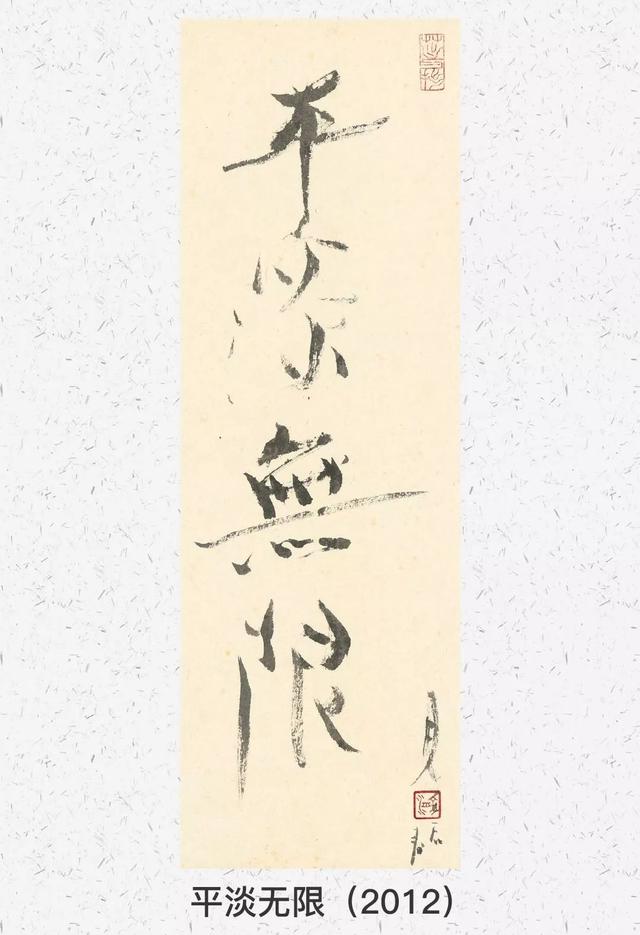 平淡無限
平淡无限（2012）